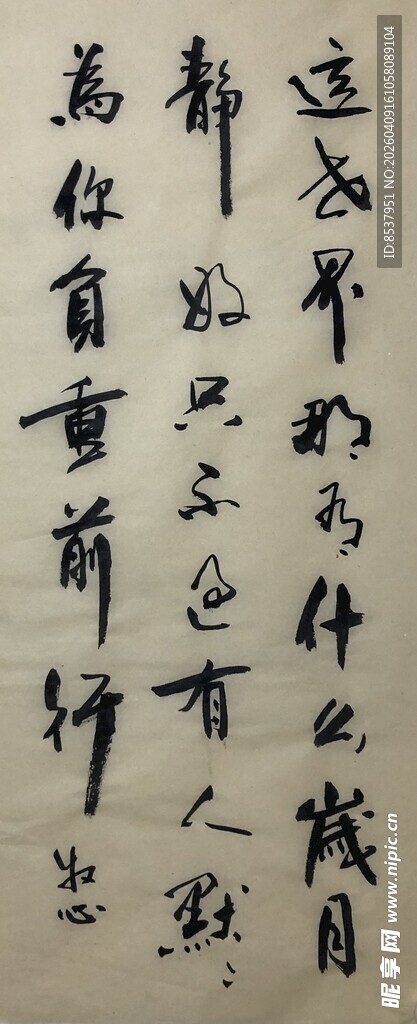 这世界那有什么岁月
静好只不过有人默〻
为你负重前行
牧心
ID:8537951 NO:20260409161058089104
昵享网 www.nipic.cn